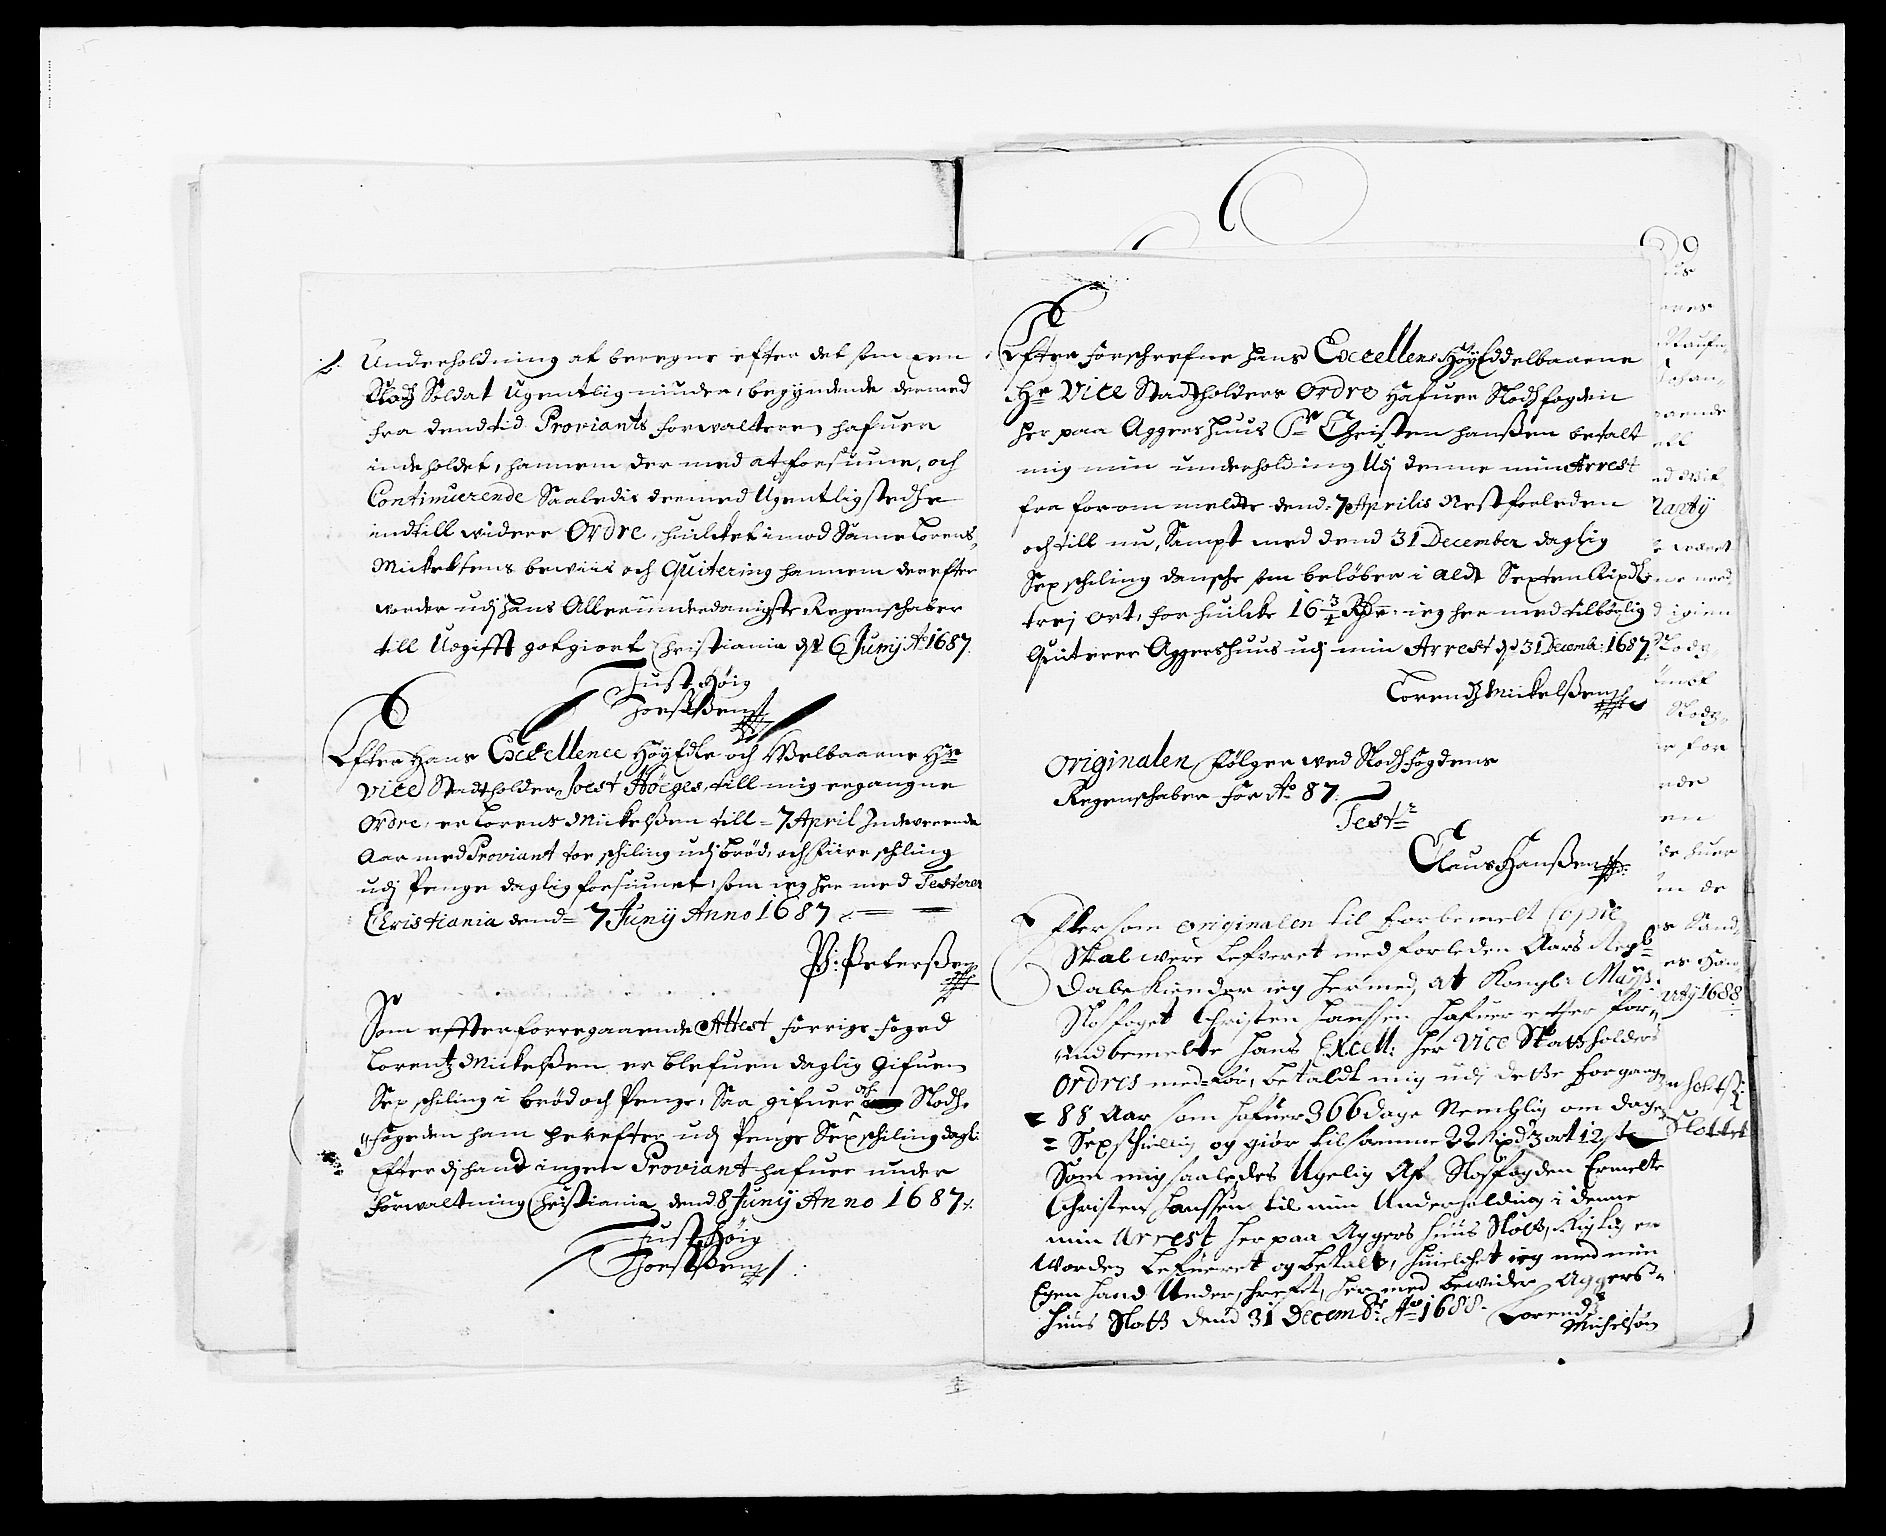 Underholdning at beregne efter det som een
Slodz Soldat Ugentlig niuder, begyndende dermed
fra dend tid Proviants forwalteren hafuer
indeholdet, hannem der med at forsiune, och
Continuerende Saaledis dermed Ugentlig
indtill widere Ordre, huilcket imod Samme Lorens
Mickelsens beviis och Quitering hannem derefter
worder udj hans Allerunderdanigste Regenschaber
till Udgifft gotgiort Christiania dend 6 Junij Ao 1687.
Just Høig
Efter Hans Excellence HøyEdle och Welbaarne Hr
Vice Stadtholder Joest Høeges till mig ergangne
Ordre, er Lorens Mickelsen till 7 April Indeverende
Aar med Proviant toe schiling udj brød, och fiire schiling
udj Penge daglig forsiunet, som ieg her med Testerer
Christiania dend 7 Junij Anno 1687
P: Petersen
Som effter forregaaende Attest forrige foged
Lorentz Mickelssen er blefuen daglig gifuen
Sex schiling i brød och Penge, Saa gifuer och Slodz
fogeden ham herefter udj Penge Sex schiling dagl:
Efter dj hand ingen Proviant hafuer under
forwaltning Christiania dend 8 Junij Anno 1687.
Just Høig
Efter forschrefne hans Excellens HøyEddelbaarne
Hr Vice Stadtholders Ordre Hafuer Slodzfogden
her paa Aggershuus Sr Christen Hanssen betalt
mig min underholding Udj denne min Arrest
fra forommeldte dend 7 Aprilis Nestforleden
och till nu, Sampt med dend 31 December daglig
Sex schiling dansche som beløber i aldt Sexten Rixdlr
trej ort, for huilcke 16 3/4 Rdr ieg her med tilbørlig
Quiterer Aggershuus udj min Arrest dend 31 Decemb: 1687
Lorentz Mickelssen
Originalen følger wed Slodzfogdens
Regenschaber for Ao 87.
Test
Claus Hanssen
Eftersom originalen til forbemelt Copie
Skal were Lefveret med forleden Aars Regb
Da bekiender ieg hermed at Kongl: Mayts
Slosfoget Christen Hanssen hafuer efter for
Hans Excell: Her Vice Statzholders
Ordres med før, betaldt mig udj dette forgangne
88 Aar som hafuer 366 dage Nemblig om dagen
Sex schiling og giør tilsamme 22 Rixdr 3 ort 12 s
Som mig saaledes Ugelig Af Slosfogden Ermelte
Christen Hanssen til min Underholding i denne
min Arrest her paa Aggers huus Slott, Rigtig er
Worden Lefueret og betalt, huilchet ieg med min
Egen Hand Underschreft, her med bevider Aggers
huus Slott dend 31 Decembr Ao 1688. Lorendz
Michelsøn